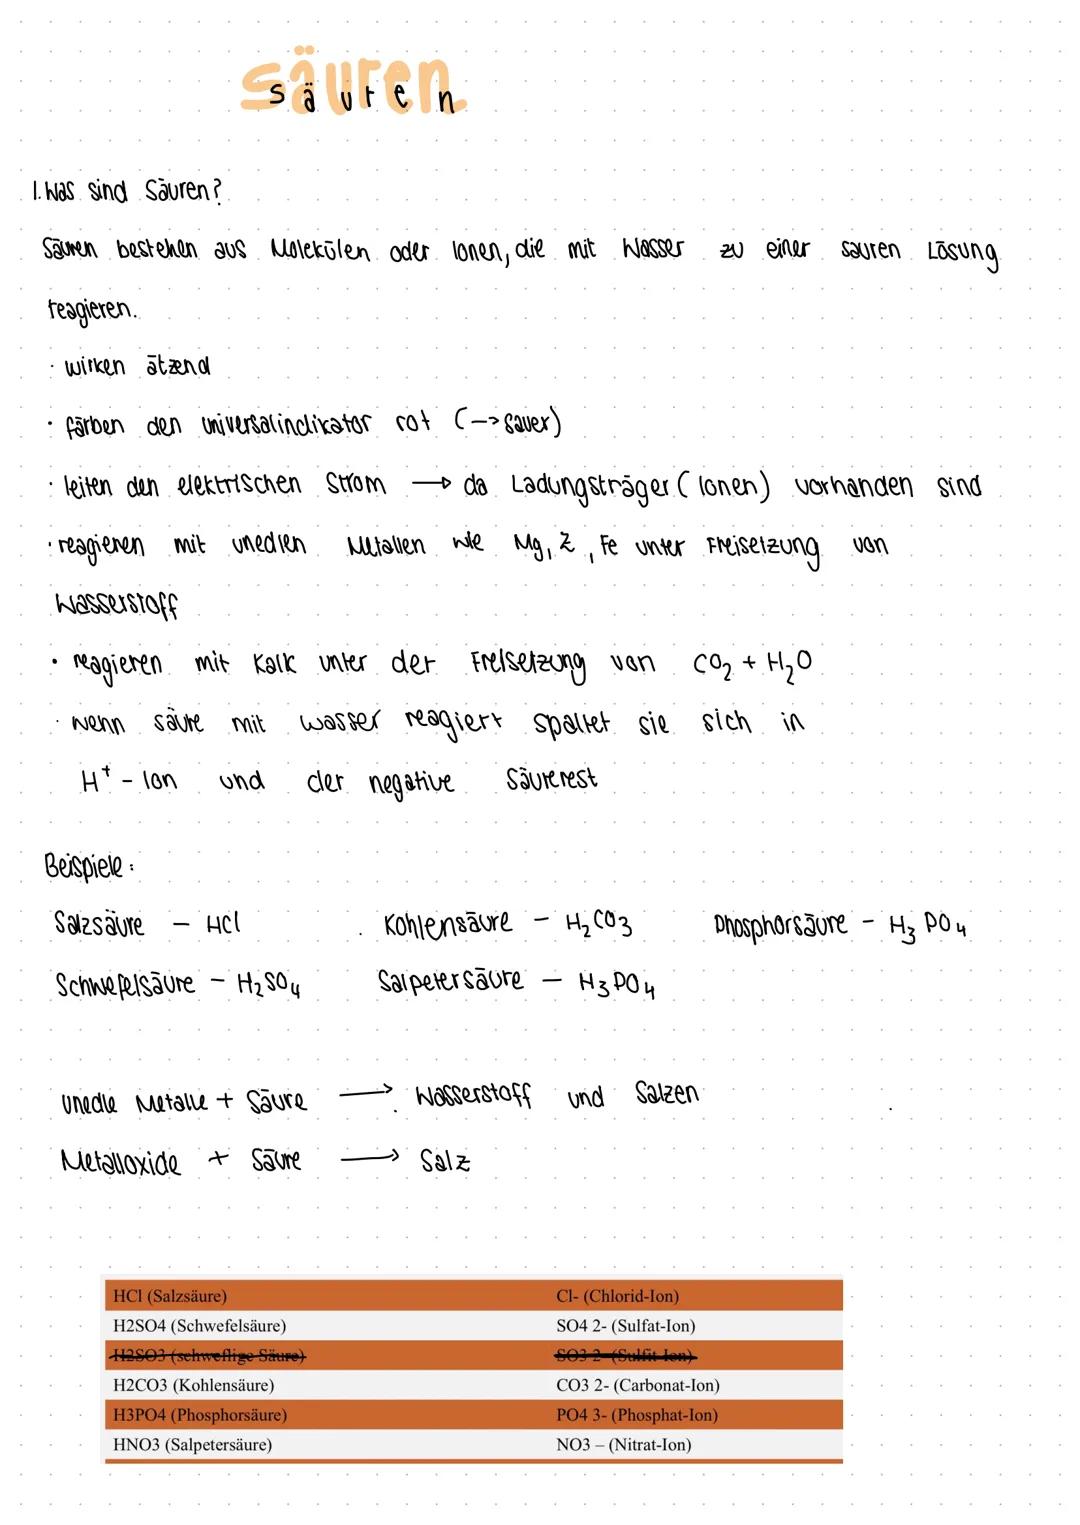 säuren
säuren
1. Was sind Säuren?
Säuren bestehen aus Molekülen oder Ionen, die mit Wasser zu einer sauren Lösung
reagieren.
· wirken ätzend
· färben den universalindikator rot (-> sauer)
· leiten den elektrischen Strom → da Ladungsträger (Ionen) vorhanden sind
· reagieren mit unedlen Metallen wie Mg, Z, Fe unter Freisetzung von
Wasserstoff
· reagieren mit Kalk unter der Freisetzung von CO₂ + H₂O
· wenn säure mit wasser reagiert spaltet sie sich in
H⁺ - Ion und der negative Säurerest
Beispiele:
Salzsäure – HCl Kohlensäure – H₂CO3 Phosphorsäure – H₃PO₄
Schwefelsäure – H₂SO₄ Salpetersäure – H₃PO₄
unedle Metalle + Säure → Wasserstoff und Salzen
Metalloxide + Säure → Salz
HCl (Salzsäure) Cl- (Chlorid-Ion)
H2SO4 (Schwefelsäure) SO4 2- (Sulfat-Ion)
H2SO3 (schweflige Säure) SO3 2- (Sulfit-Ion)
H2CO3 (Kohlensäure) CO3 2- (Carbonat-Ion)
H3PO4 (Phosphorsäure) PO4 3- (Phosphat-Ion)
HNO3 (Salpetersäure) NO3 – (Nitrat-Ion)